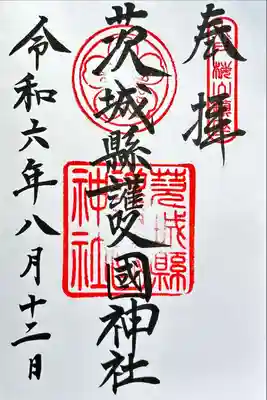 奉拝
茨城縣護國神社
令和六年八月十二日
茨城縣
護國
神社